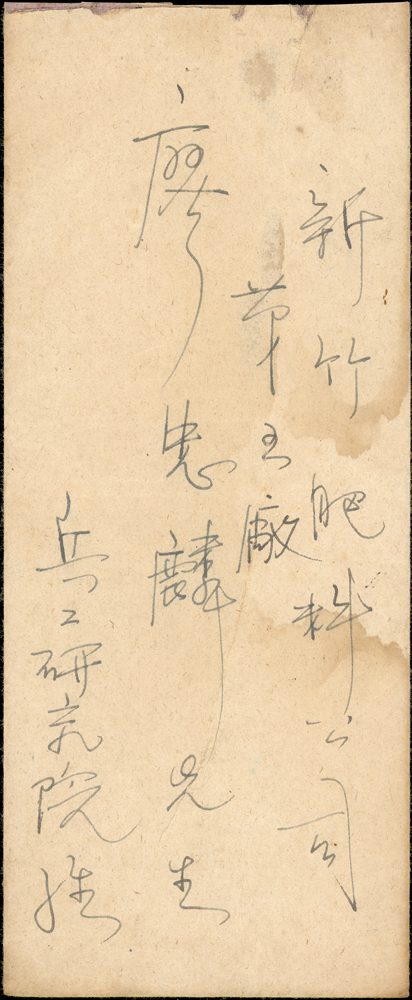 新竹肥料公司
第五廠
廖忠麟先生
兵工研究院